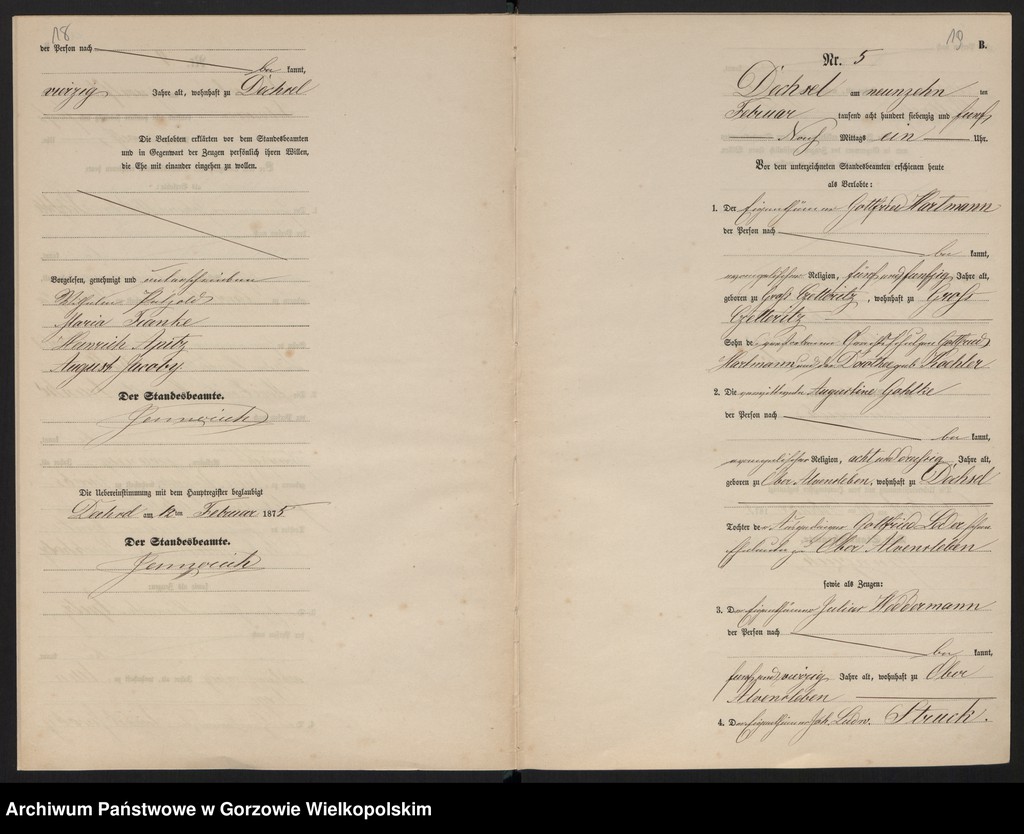 18
der Person nach
be kannt,
vierzig Jahre alt, wohnhaft zu Dechsel
Die Verlobten erklärten vor dem Standesbeamten
und in Gegenwart der Zeugen persönlich ihren Willen,
die Ehe mit einander eingehen zu wollen.
Vorgelesen, genehmigt und unterschrieben
Wilhelm
Maria Franke
Heinrich Apitz
August Jacoby
Der Standesbeamte.
Die Uebereinstimmung mit dem Hauptregister beglaubigt
Dechsel am 12ten Februar 1875
Der Standesbeamte.
19
B.
Nr. 5
Dechsel am neunzehn ten
Februar tausend acht hundert siebenzig und fünf
Nach Mittags ein Uhr.
Vor dem unterzeichneten Standesbeamten erschienen heute
als Verlobte:
1. Der Eigenthümer Gottfried Hartmann
der Person nach
be kannt,
evangelischer Religion, fünf und fünfzig Jahre alt,
geboren zu Groß Czettritz, wohnhaft zu Groß
Czettritz
Sohn de Gottfried
Hartmann und der Dorothe geb. Kochler
2. Die Augustine Gohlke
der Person nach
be kannt,
evangelischer Religion, acht und dreißig Jahre alt,
geboren zu Ober Alvensleben, wohnhaft zu Dechsel
Tochter de Gottfried
zu Ober Alvensleben
sowie als Zeugen:
3. Der Eigenthümer Julius Weddermann
der Person nach
be kannt,
fünf und vierzig Jahre alt, wohnhaft zu Ober
Alvensleben
4. Der Eigenthümer Joh. Ludw. Struck.
Archiwum Państwowe w Gorzowie Wielkopolskim